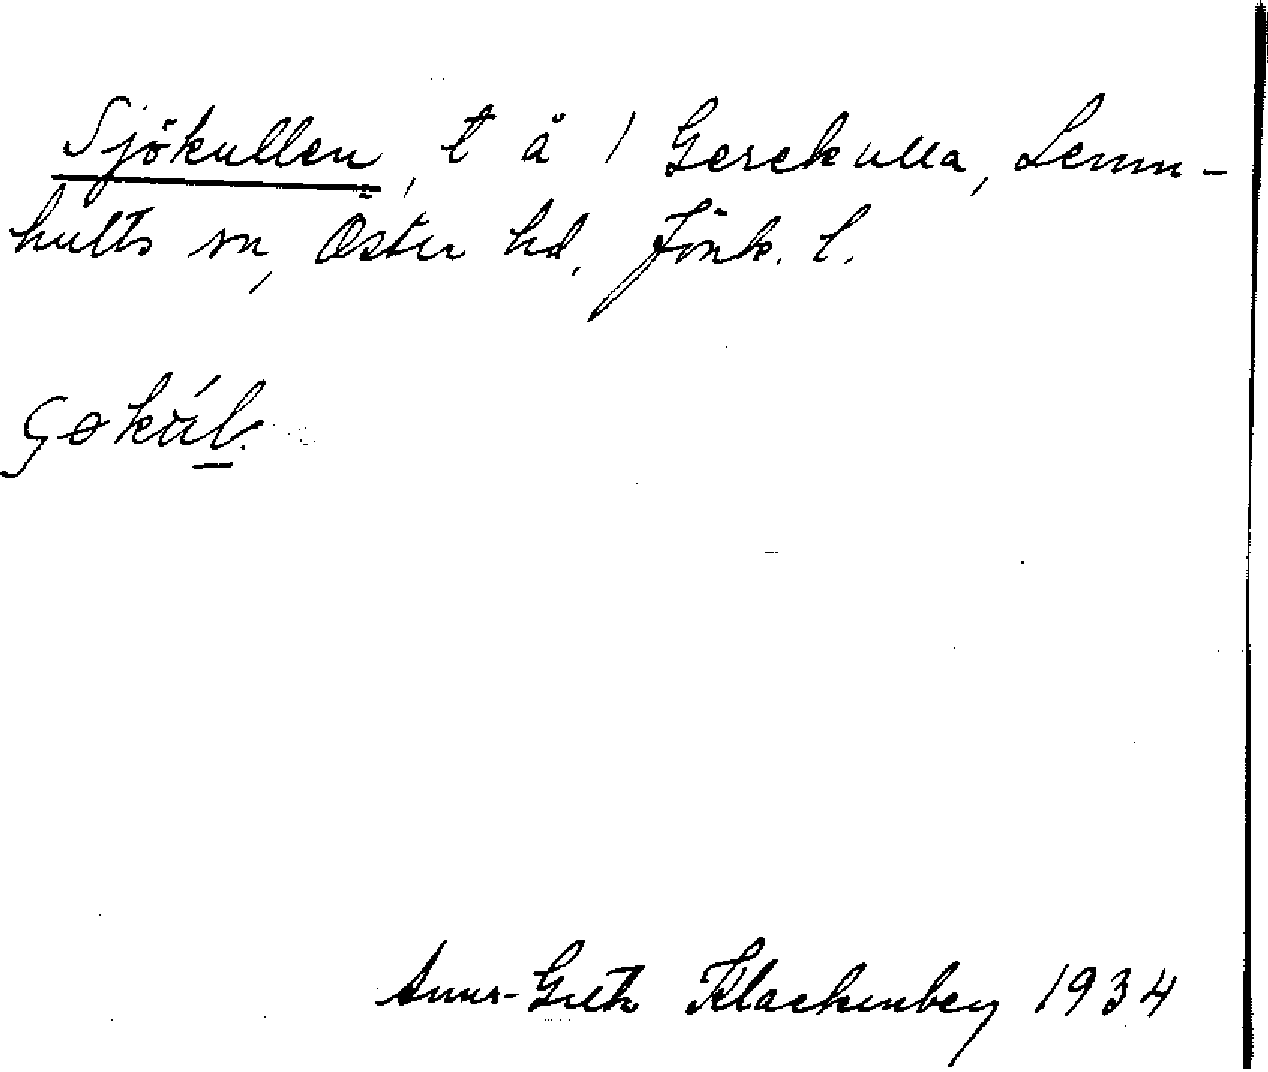 Sjökullen, t å 1 Gerekulla, Lemn-
hults sn, Öster hd. Jönk. l.
Anna-Greta Klackenberg 1934